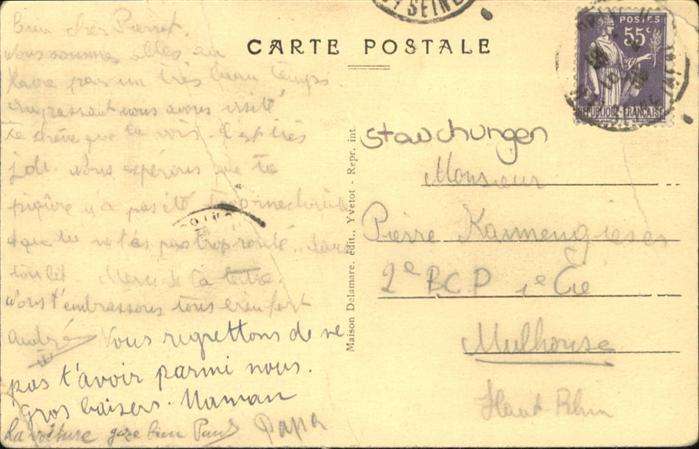 SEINE
CARTE POSTALE
POSTES
55c
REPUBLIQUE FRANÇAISE
Bien cher Pierrot.
Nous sommes allés au
Havre par un très beau temps
nous avons visité
que la voir. C'est très
joli. Nous espérons que ta
piqûre n'a pas été
et que tu ne l'as pas trop
Merci de ta lettre
Nous t'embrassons tous bien fort
André
Vous regrettons de ne
pas t'avoir parmi nous.
Gros baisers. Maman
La voiture gaze bien Paul Papa
Maison Delamare, édit., Yvetot - Repr. int.
stauchungen
Monsieur
Pierre
2e BCP 1e Cie
Mulhouse
Haut-Rhin